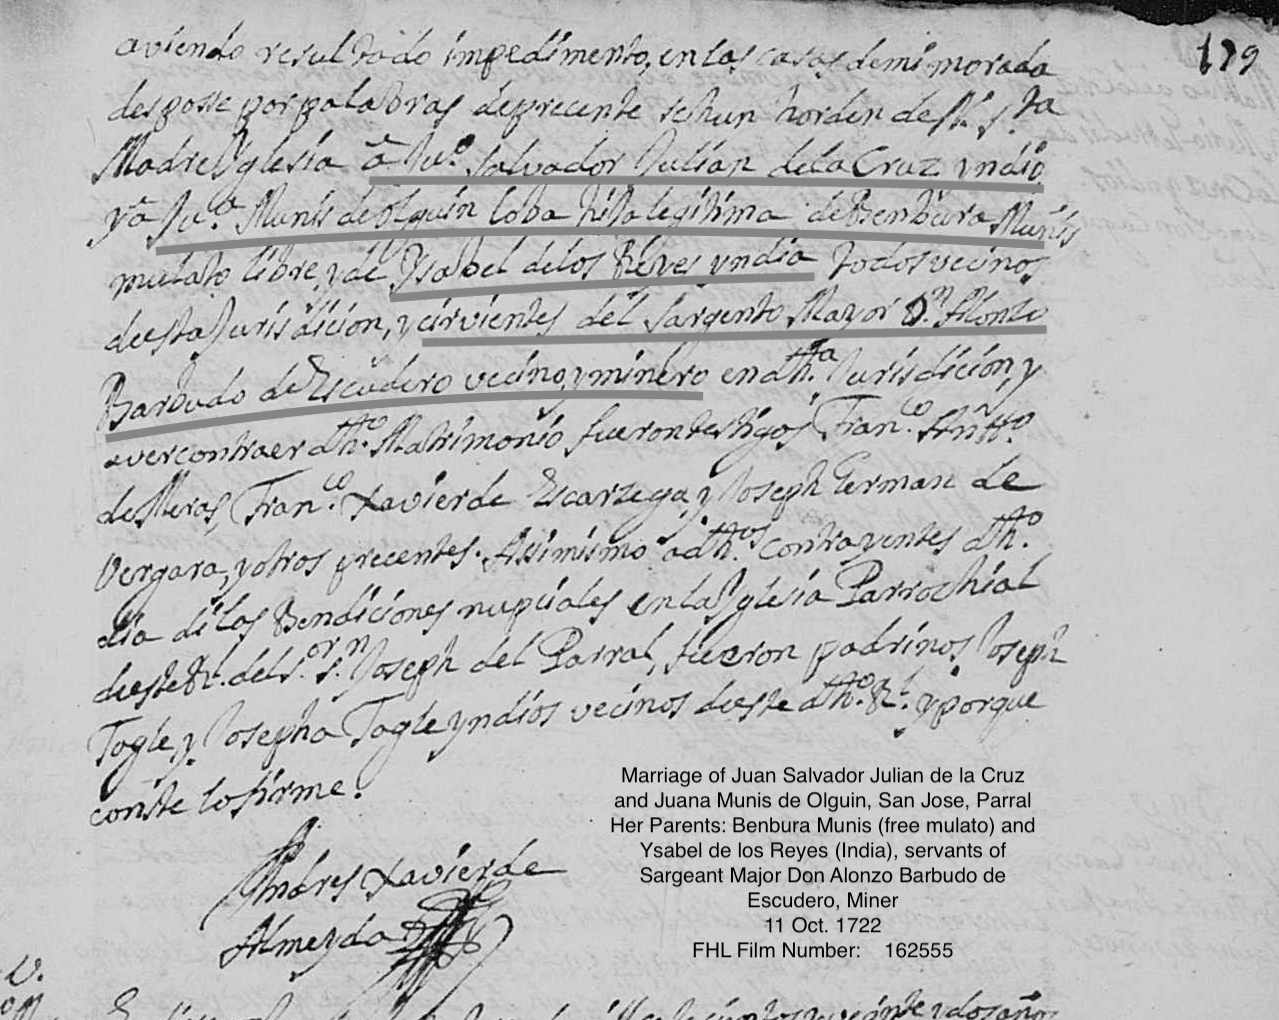 179
aviendo resultado impedimento, en las casas de mi morada
despose por palabras de precente sehun horden de N.ª S.ta
Madre Yglesia â Ju.º Salvador Julian de la Cruz yndio
y â Ju.ª Munis de Olguin loba hija legitima de Benbura Munis
mulato libre, y de Ysabel de los Reyes yndia todos vecinos
de esta Jurisdicion, y cirvientes del Sargento Mayor D.n Alonzo
Barbudo de Escudero vecino, y minero en dh.ª Jurisdicion, y
a ver contraer dh.º Matrimonio fueron testigos Fran.co Antt.º
de Meras, Fran.co Xavier de Escarzega, y Joseph German de
Vergara, y otros precentes. Assimismo a dh.os Contrayentes dh.º
dia di las Bendiciones nupciales en la Yglesia Parrochial
de este R.l del S.or S.n Joseph del Parral, fueron padrinos Joseph
Tagle, y Josepha Tagle yndios vecinos de este dh.º R.l y porque
conste lo firme.
Andres Xavier de
Almeyda
Marriage of Juan Salvador Julian de la Cruz
and Juana Munis de Olguin, San Jose, Parral
Her Parents: Benbura Munis (free mulato) and
Ysabel de los Reyes (India), servants of
Sargeant Major Don Alonzo Barbudo de
Escudero, Miner
11 Oct. 1722
FHL Film Number: 162555